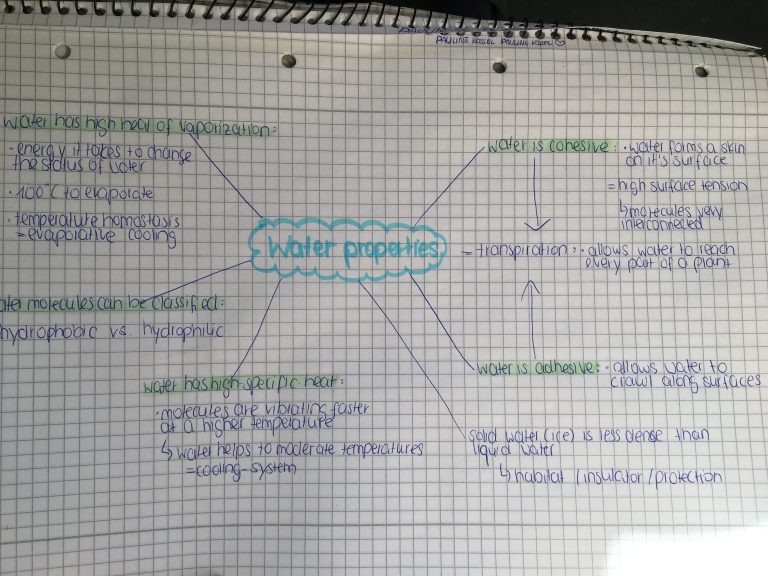 PAULINE KOSSEL PAULINE KOSSEL
water has high heat of vaporization:
· energy it takes to change
the status of water
· 100°C to evaporate
· temperature homostasis
= evaporative cooling
ater molecules can be classified:
hydrophobic vs hydrophilic
water has high specific heat:
· molecules are vibrating faster
at a higher temperature
↳ water helps to moderate temperatures
= cooling-system
Water properties
water is cohesive: · water forms a skin
on it's surface
= high surface tension
↳ molecules very
interconnected
= transpiration: · allows water to reach
every part of a plant
water is adhesive: · allows water to
crawl along surfaces
solid water (ice) is less dense than
liquid water
↳ habitat / insulator / protection